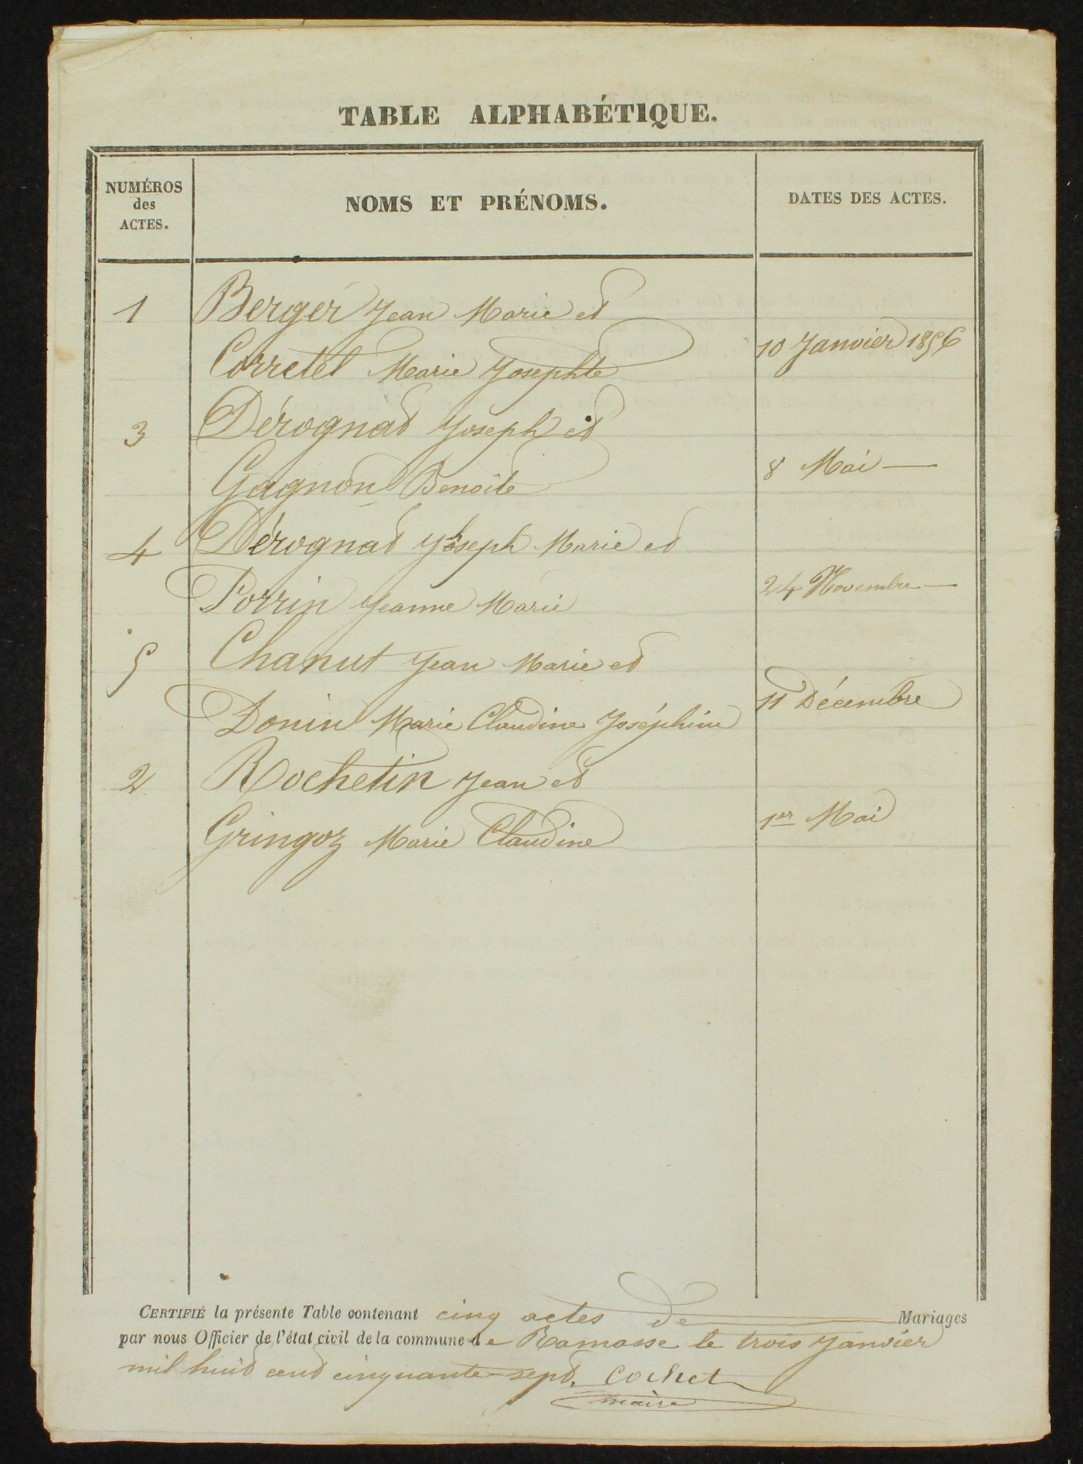 TABLE ALPHABÉTIQUE.
NUMÉROS
des
ACTES.
NOMS ET PRÉNOMS.
DATES DES ACTES.
1 Berger Jean Marie et
Corretel Marie Josephte 10 Janvier 1856
3 Dérognat Joseph et
Gagnon Benoite 8 Mai —
4 Dérognat Joseph Marie et
Porrin Jeanne Marie 24 Novembre —
5 Chanut Jean Marie et
Donin Marie Claudine Joséphine 11 Décembre
2 Rochetin Jean et
Gringoz Marie Claudine 1er Mai
CERTIFIÉ la présente Table contenant cinq actes de Mariages
par nous Officier de l'état civil de la commune de Ramasse le trois Janvier
mil huit cent cinquante sept. Cochet
maire